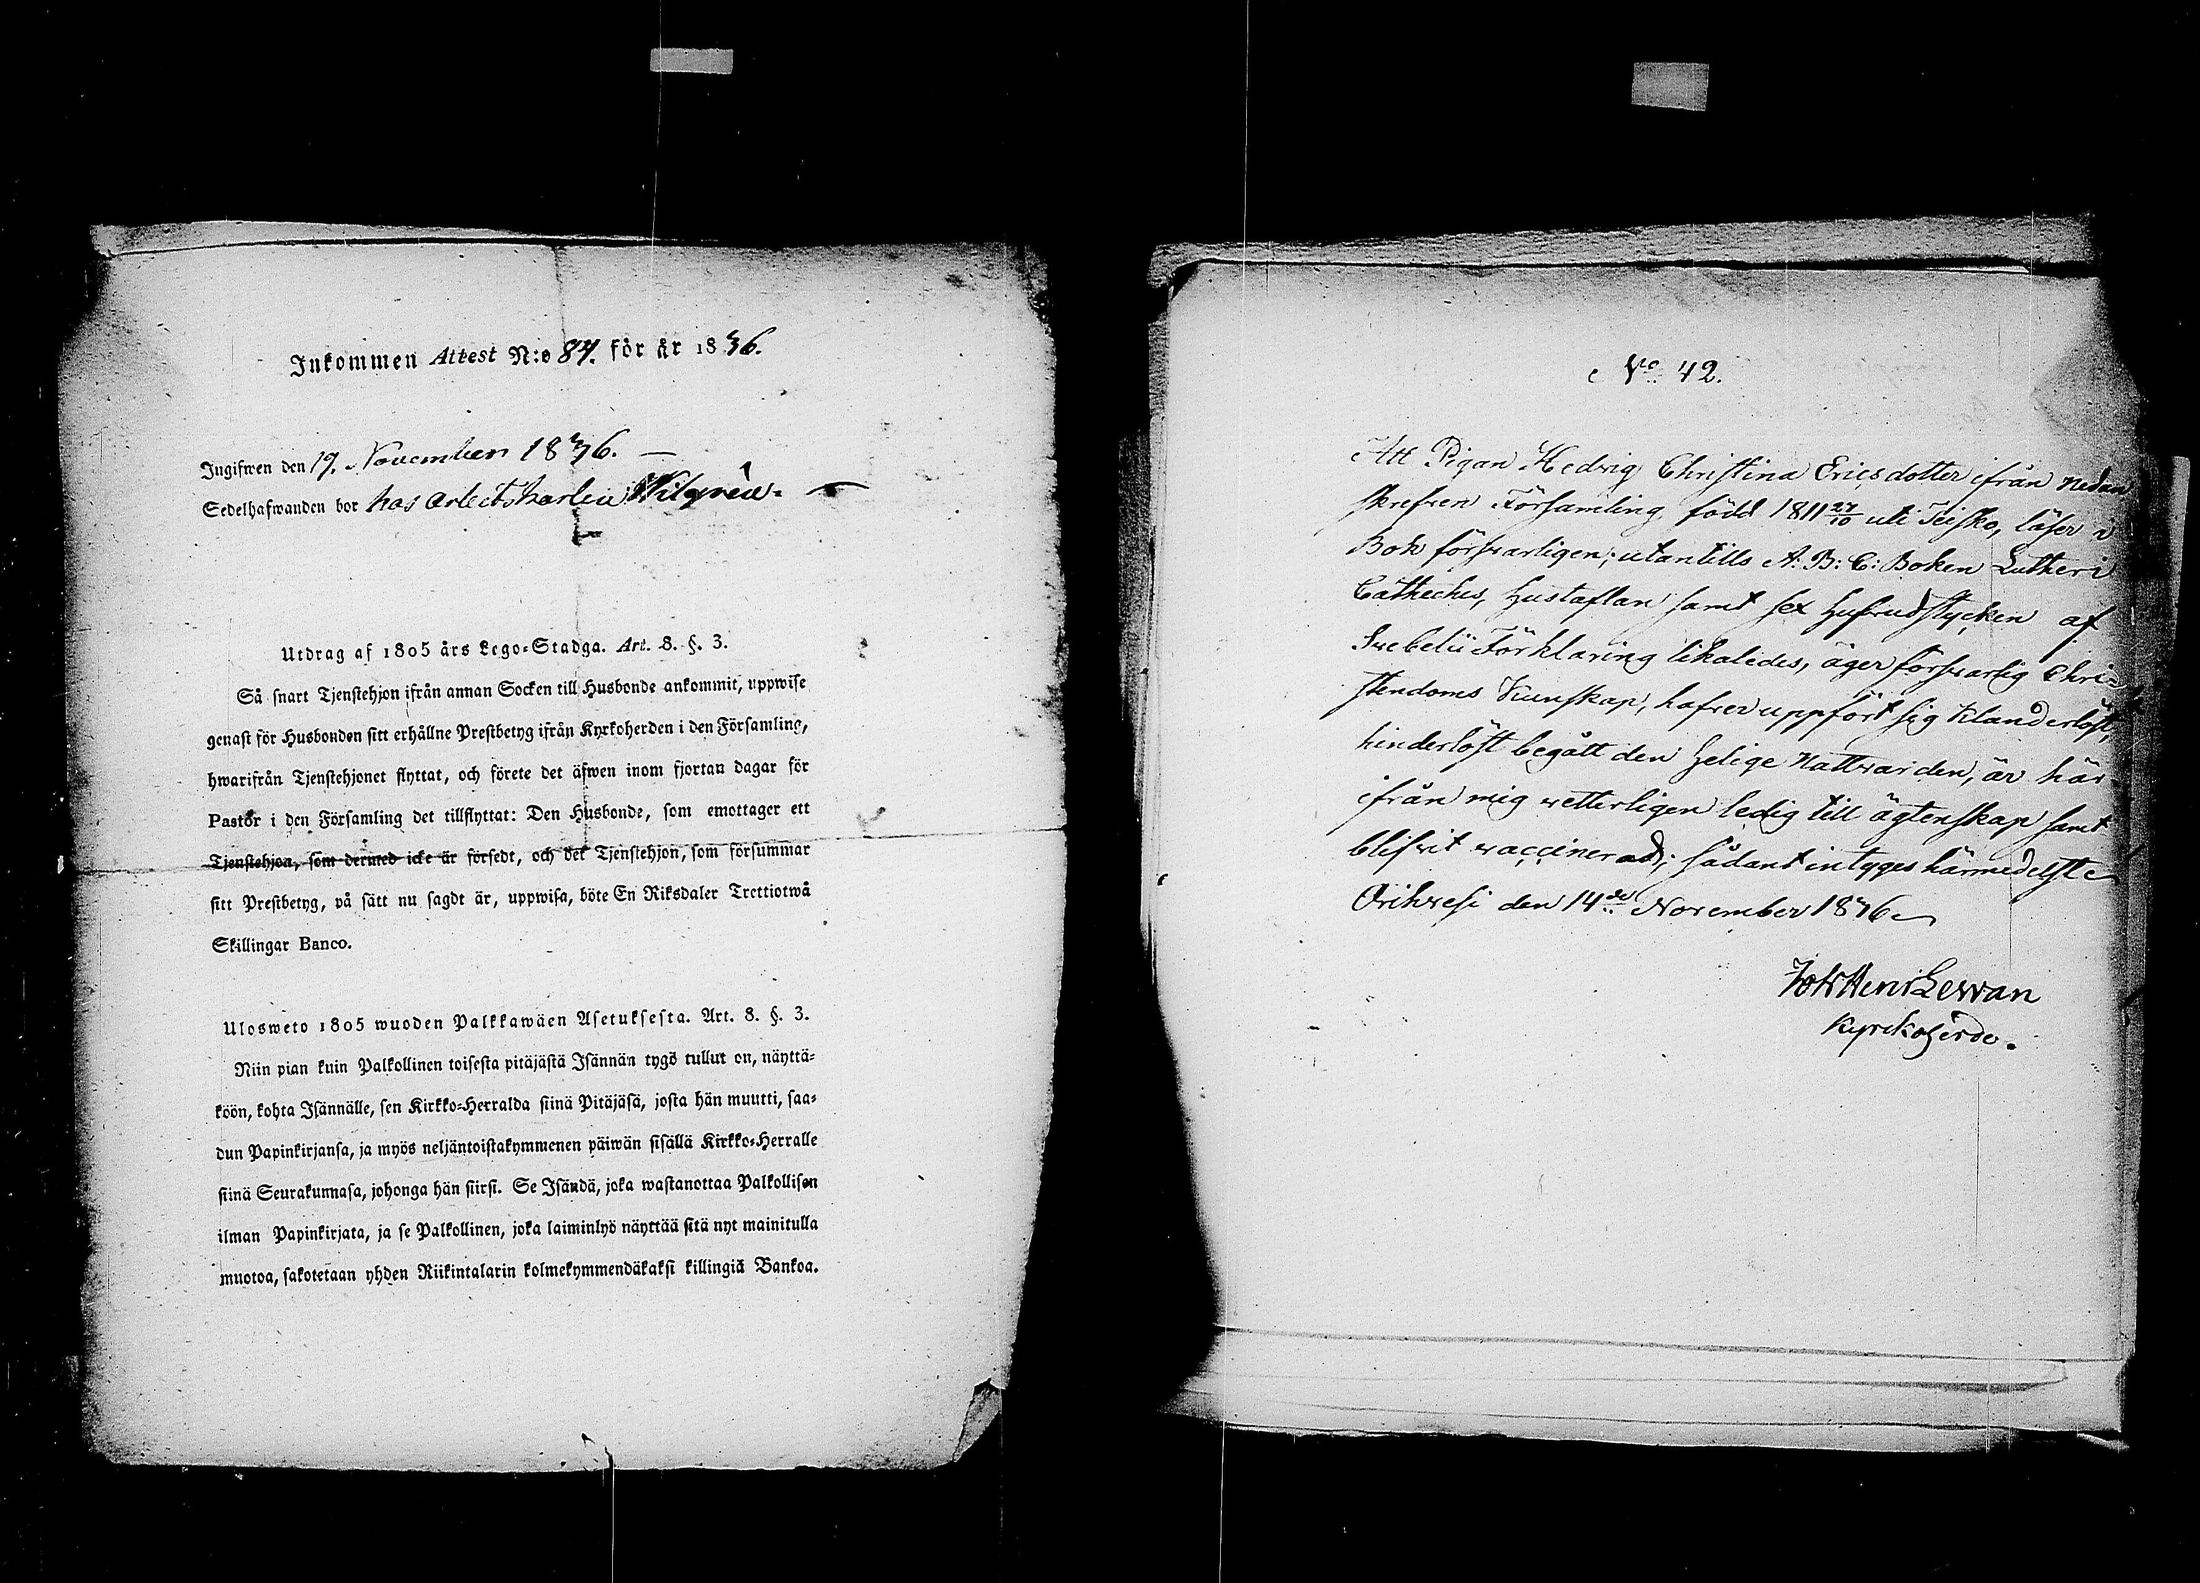 Inkommen Attest N:o 84. för år 1836.
Ingifwen den 19. November 1836. —
Sedelhafwanden bor hos arbetskarlen Wilgrén. —
Utdrag af 1805 års Lego-Stadga. Art. 8. §. 3.
Så snart Tjenstehjon ifrån annan Socken till Husbonde ankommit, uppwise
genast för Husbonden sitt erhållne Prestbetyg ifrån Kyrkoherden i den Församling,
hwarifrån Tjenstehjonet flyttat, och förete det äfwen inom fjortan dagar för
Pastor i den Församling det tillflyttat: Den Husbonde, som emottager ett
Tjenstehjon, som dermed icke är försedt, och det Tjenstehjon, som försummar
sitt Prestbetyg, på sätt nu sagdt är, uppwisa, böte En Riksdaler Trettiotwå
Skillingar Banco.
Ulosweto 1805 wuoden Palkkawäen Asetuksesta. Art. 8. §. 3.
Niin pian kuin Palkollinen toisesta pitäjästä Isännän tygö tullut on, näyttä-
köön, kohta Isännälle, sen Kirkko-Herralda siinä Pitäjäsä, josta hän muutti, saa-
dun Papinkirjansa, ja myös neljäntoistakymmenen päiwän sisällä Kirkko-Herralle
siinä Seurakunnasa, johonga hän siirsi. Se Isändä, joka wastanottaa Palkollisen
ilman Papinkirjata, ja se Palkollinen, joka laiminlyö näyttää sitä nyt mainitulla
muotoa, sakotetaan yhden Riikintalarin kolmekymmendäkaksi killingiä Bankoa.
No 42.
Att Pigan Hedvig Christina Ericsdotter ifrån nedan
skrefven Församling, född 1811 27/10 uti Teisko, läser i
Bok försvarligen; utantills A: B: C: Boken Lutheri
Cateches, Hustaflan samt sex Hufvudstycken af
Svebelii Förklaring likaledes, äger försvarlig Chri-
stendoms Kunskap, hafver uppfört sig klanderlöst,
hinderlöst begått den Helige Nattvarden, är här-
ifrån mig vetterligen ledig till ägtenskap samt
blifvit vaccinerad; sådant intyges härmedelst
Orihvesi den 14de November 1836
Joh Henr Levan
Kyrckoherde.